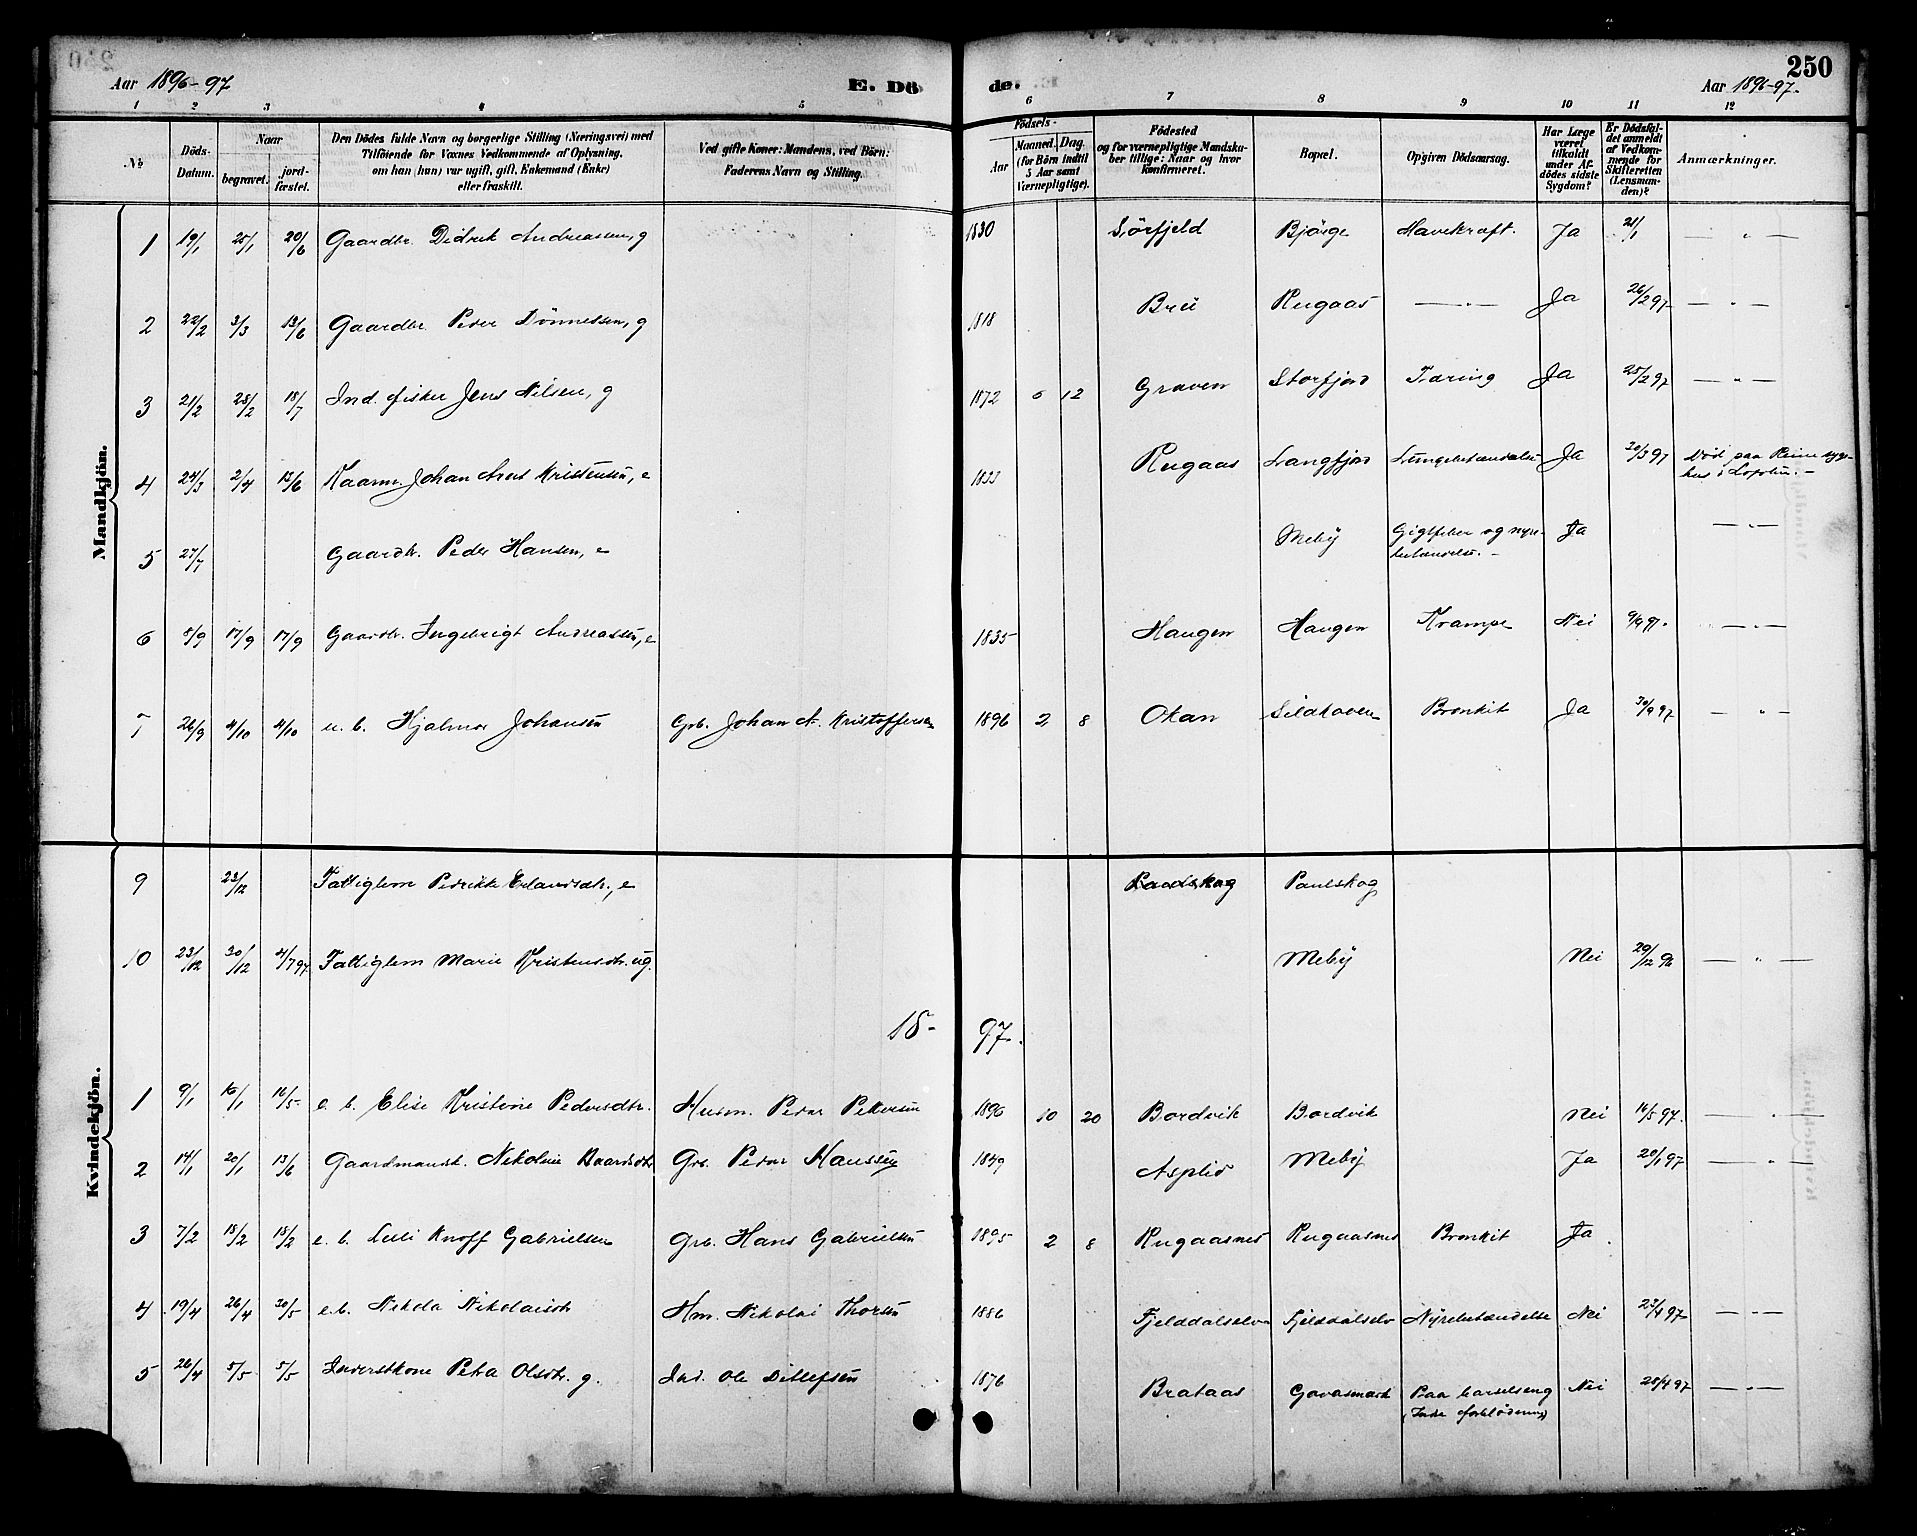 250
Aar 1896-97
E. Dö
de.
Aar 1896-97.
1 2 3 4 5 6 7 8 9 10 11 12
No
Döds-
Datum.
Naar
begravet.
jord-
fæstet.
Den Dödes fulde Navn og borgerlige Stilling (Næringsvei) med
Tilföiende for Voxnes Vedkommende af Oplysning,
om han (hun) var ugift, gift, Enkemand (Enke)
eller fraskilt.
Ved gifte Koner: Mandens, ved Börn:
Faderens Navn og Stilling.
Födsels-
Aar
Maaned. Dag.
(for Börn indtil
5 Aar samt
Værnepligtige).
Födested
og for værnepligtige Mandska-
ber tillige: Naar og hvor
konfirmeret.
Bopæl.
Opgiven Dödsaarsag.
Har Læge
været
tilkaldt
under Af-
dödes sidste
Sygdom?
Er Dödsfal-
det anmeldt
af Vedkom-
mende for
Skifteretten
(Lensman-
den)?
Anmærkninger.
Mandkjön.
1 19/1 25/1 20/6 Gaardbr. Didrik Andreassen, g 1830 Sörfjeld Bjørge Mavekræft. Ja 21/1 — " —
2 22/2 3/3 13/6 Gaardbr Peder Dønnessen, g 1818 Brei Rugaas — " — Ja 26/2 97 — " —
3 21/2 28/2 18/7 Ind. fisker Jens Nilsen, g 1872 6 12 Graven Storfjord Tæring Ja 25/2 97 — " —
4 24/3 2/4 13/6 Kaarm. Johan Arnt Kristensen, e 1833 Rugaas Langfjord Lungebetændelse Ja 30/3 97 Död paa Reine syge-
hus i Lofoten. —
5 27/7 Gaardbr. Peder Hansen, e Meby Gigtfeber og nyre-
betændelse. — Ja — " —
6 8/9 17/9 17/9 Gaardbr. Ingebrigt Andreassen, e 1835 Haugen Haugen Krampe Nei 9/9 97. — " —
7 26/9 4/10 4/10 u. b. Hjalmar Johansen Grb. Johan A. Kristoffersen 1896 2 8 Okan Sildhaven Bronkit Ja 30/9 97 — " —
Kvindekjön.
9 23/12 Fattiglem Pedrikke Erlandsdtr., e Raadskog Paulskog
10 23/12 30/12 4/7 97 Fattiglem Marie Kristensdtr. ug. Meby Nei 29/12 96 — " —
18- 97.
1 9/1 16/1 16/5 e. b. Elise Kristine Pedersdtr. Husm. Peder Pettersen 1896 10 20 Bordvik Bordvik Nei 16/5 97. — " —
2 14/1 20/1 13/6 Gaardmandsk. Nikoline Baardsdtr Grb. Peder Hanssen 1849 Asplid Meby Ja 20/1 97 — " —
3 7/2 18/2 18/2 e. b. Lulli Knoff Gabrielsen Grb. Hans Gabrielsen 1895 2 8 Rugaasnes Rugaasnes Bronkit Ja.
4 19/4 26/4 30/5 e. b. Nikola Nikolaisdtr Hm. Nikolai Thorsen 1886 Fjelddalselv Fjelddalselv Nyrebetændelse Nei 23/4 97 — " —
5 26/4 5/5 5/5 Inderstkone Petra Olsdtr. g. Ind. Ole Ditlefsen 1876 Brataas Govasmark Paa barselseng
(Indre forblødning) Nei 28/4 97 — " —